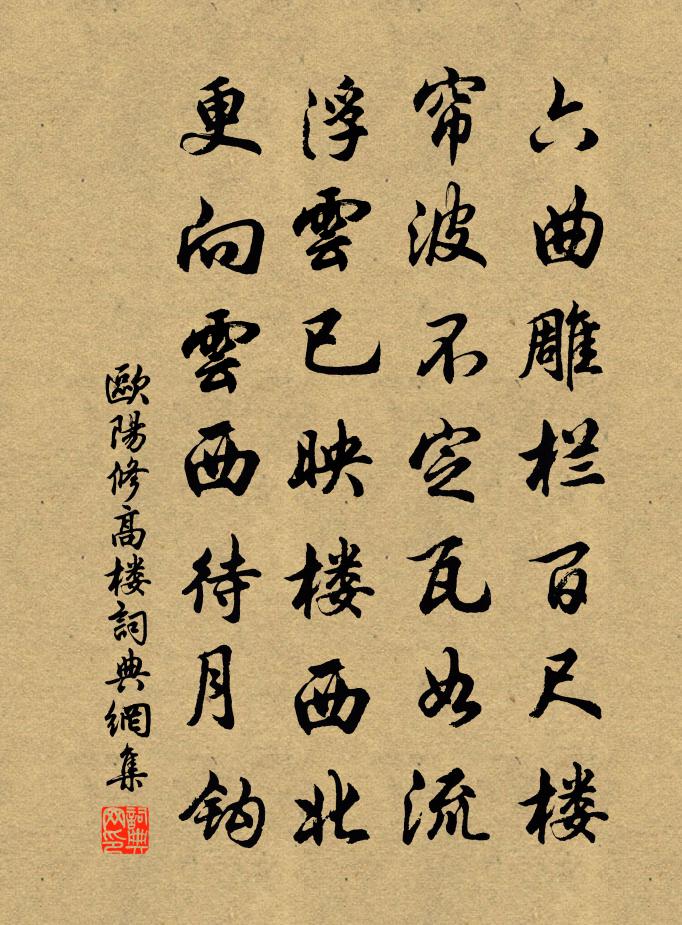 六曲雕栏百尺楼
帘波不定瓦如流
浮雲已映楼西北
更向雲西待月钩
歐陽修高楼詞典網集
詞典网印